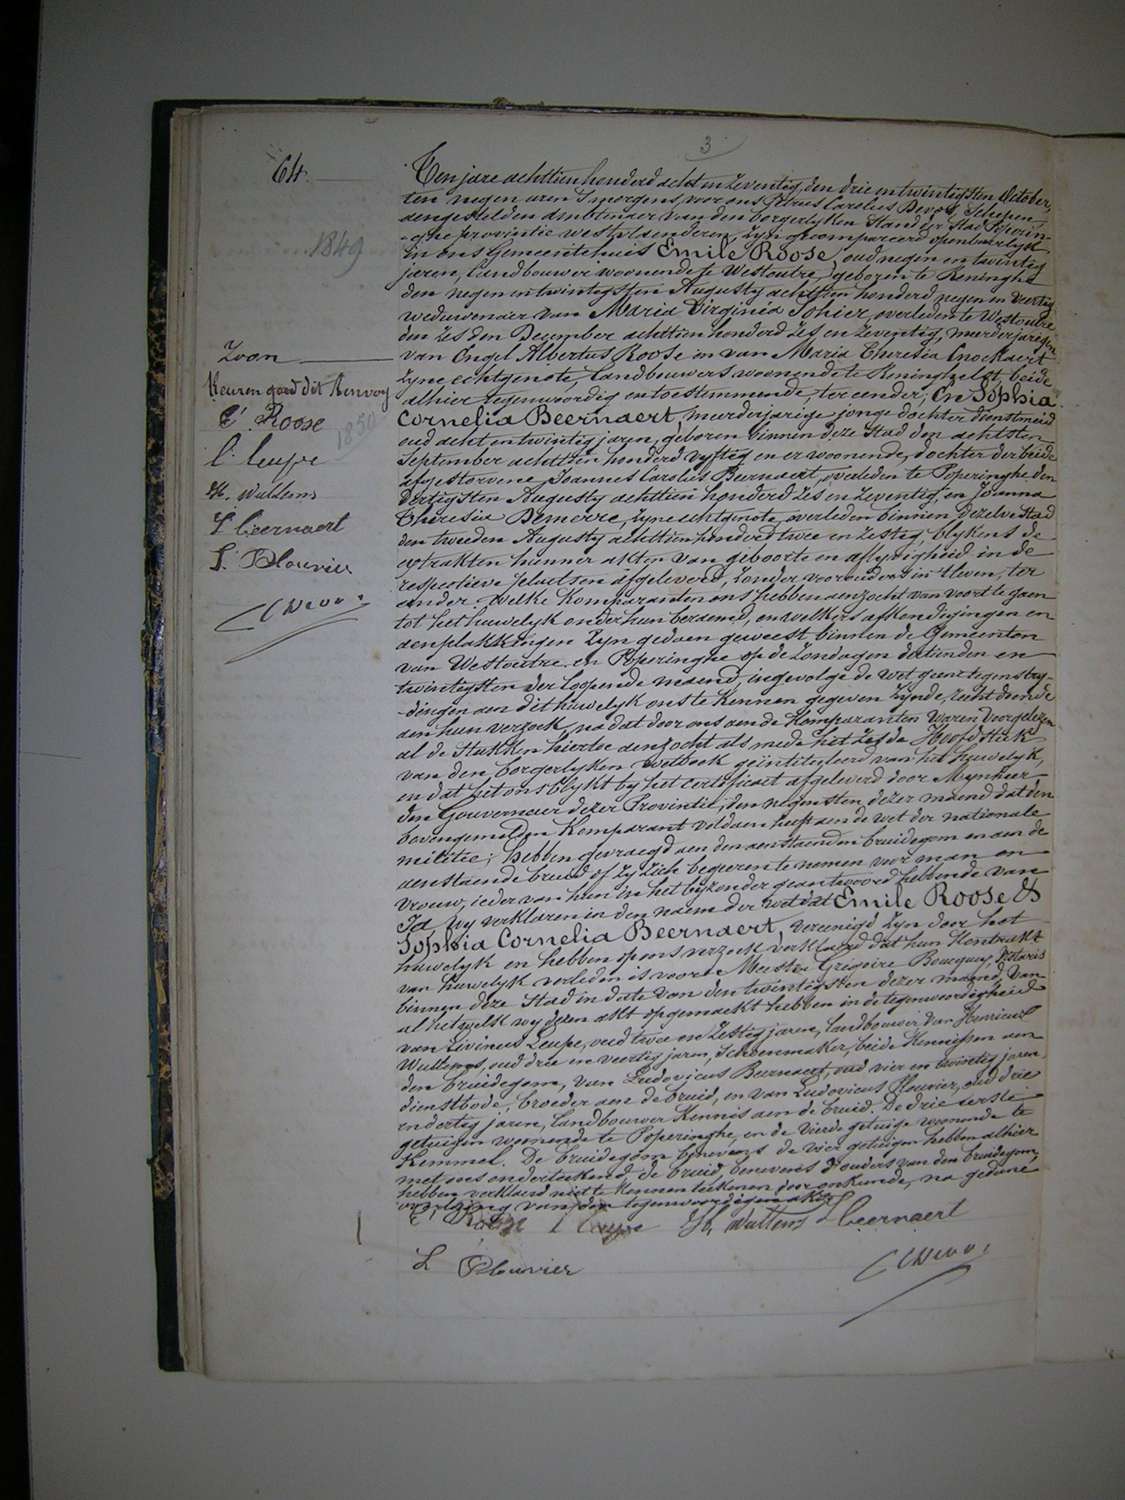 64.
3
Ten jare achttien honderd acht en zeventig, den drie en twintigsten October,
ten negen uren 's morgens, voor ons Petrus Carolus Devos, Schepen
aengestelden ambtenaer van den borgerlyken Stand der Stad Poperin-
-ghe provintie westvlaenderen, zyn gecompareerd openbaerlyk
1849
in ons Gemeentehuis Emile Roose, oud negen en twintig
jaren, landbouwer woonende te Westoutre, geboren te Reninghe
den negen en twintigsten Augusty achttien honderd negen en veertig
weduwenaer van Maria Virginia Sohier, overleden te Westoutre
den zesden December achttien honderd zes en zeventig, meerderjarigen
Zoon
van Engel Albertus Roose en van Maria Theresia Cnockaert
Keuren goed dit Renvoy
zyne echtgenote, landbouwers woonende te Reninghelst beide
alhier tegenwoordig en toestemmende, ter eender; En Sophia
E. Roose
1850
Cornelia Beernaert, meerderjarige jonge dochter dienstmeid
oud acht en twintig jaren, geboren binnen deze Stad den achtsten
L. Leupe
September achttien honderd vyftig en er woonende, dochter der beide
afgestorvene, Joannes Carolus Beernaert, overleden te Poperinghe den
H. Wullems
dertigsten Augusty achttien honderd zes en zeventig, en Joanna
L Beernaert
Theresia Demerre, zyne echtgenote, overleden binnen dezelve Stad
den tweeden Augusty achttien honderd twee en zestig; blykens de
L. Plouvier
extrakten hunner akten van geboorte en aflyvigheid in de
respectieve plaetsen afgeleverd, zonder voorouders in 't leven, ter
C Devos
ander. Welke Komparanten ons hebben aenzocht van voort te gaen
tot het huwelyk onder hun beraemd, en welkers afkondigingen en
aenplakkingen zyn gedaen geweest binnen de Gemeenten
van Westoutre en Poperinghe op de zondagen datunden en
twintigsten der loopende maend, ingevolge de wet geene tegenstry-
-dingen aen dit huwelyk ons te kennen gegeven zynde, recht doende
aen hun verzoek, na dat door ons aen de Komparanten waren voorgelezen
al de Stukken hiertoe aenzocht als mede het zesde Hoofdstuk
van den borgerlyken wetboek geintituleerd van het huwelyk,
en dat het ons blykt by het certificaet afgeleverd door Mynheer
den Gouverneur dezer Provintie, den negensten dezer maend dat den
bovengemelden Komparant voldaen heeft aen de wet der nationale
militie; hebben gevraegd aen den aenstaenden bruidegom en aen de
aenstaende bruid of zy zich begeeren te nemen voor man en
vrouw, ieder van hun in het byzonder geantwoord hebbende van
Ja, wy verklaren in den naem der wet dat Emile Roose &
Sophia Cornelia Beernaert, vereenigd zyn door het
huwelyk en hebben op ons verzoek verklaerd dat hun Kontrakt
van huwelyk verleden is voor Meester Gregoire Boucquey, Notaris
binnen deze Stad in date van den twintigsten dezer maend, Van
al hetwelk wy dezen akt opgemaekt hebben in de tegenwoordigheid
van Livinus Leupe, oud twee en zestig jaren, landbouwer van Henricus
Wullems, oud drie en veertig jaren, Schoenmaker, beide Kennissen aen
den bruidegom, van Ludovicus Beernaert, oud vier en twintig jaren
dienstbode, broeder aen de bruid, en van Ludovicus Plouvier, oud drie
en dertig jaren, landbouwer Kennis aen de bruid. De drie eerste
getuigen woonende te Poperinghe, en de vierde getuige woonende te
Kemmel. De bruidegom benevens de vier getuigen hebben alhier
met ons onderteekend, de bruid, benevens d'ouders van den bruidegom,
hebben verklaerd niet te konnen teekenen door onkunde, na gedane
voorlezing van dezen tegenwoordigen akt.
E. Roose L Leupe H. Wullems L Beernaert
L Plouvier
C Devos